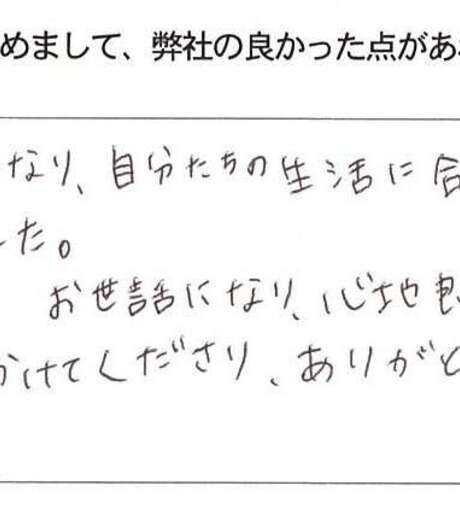 めまして、弊社の良かった点があ
なり、自分たちの生活に合
した。
お世話になり、心地良
かけてくださり、ありがと